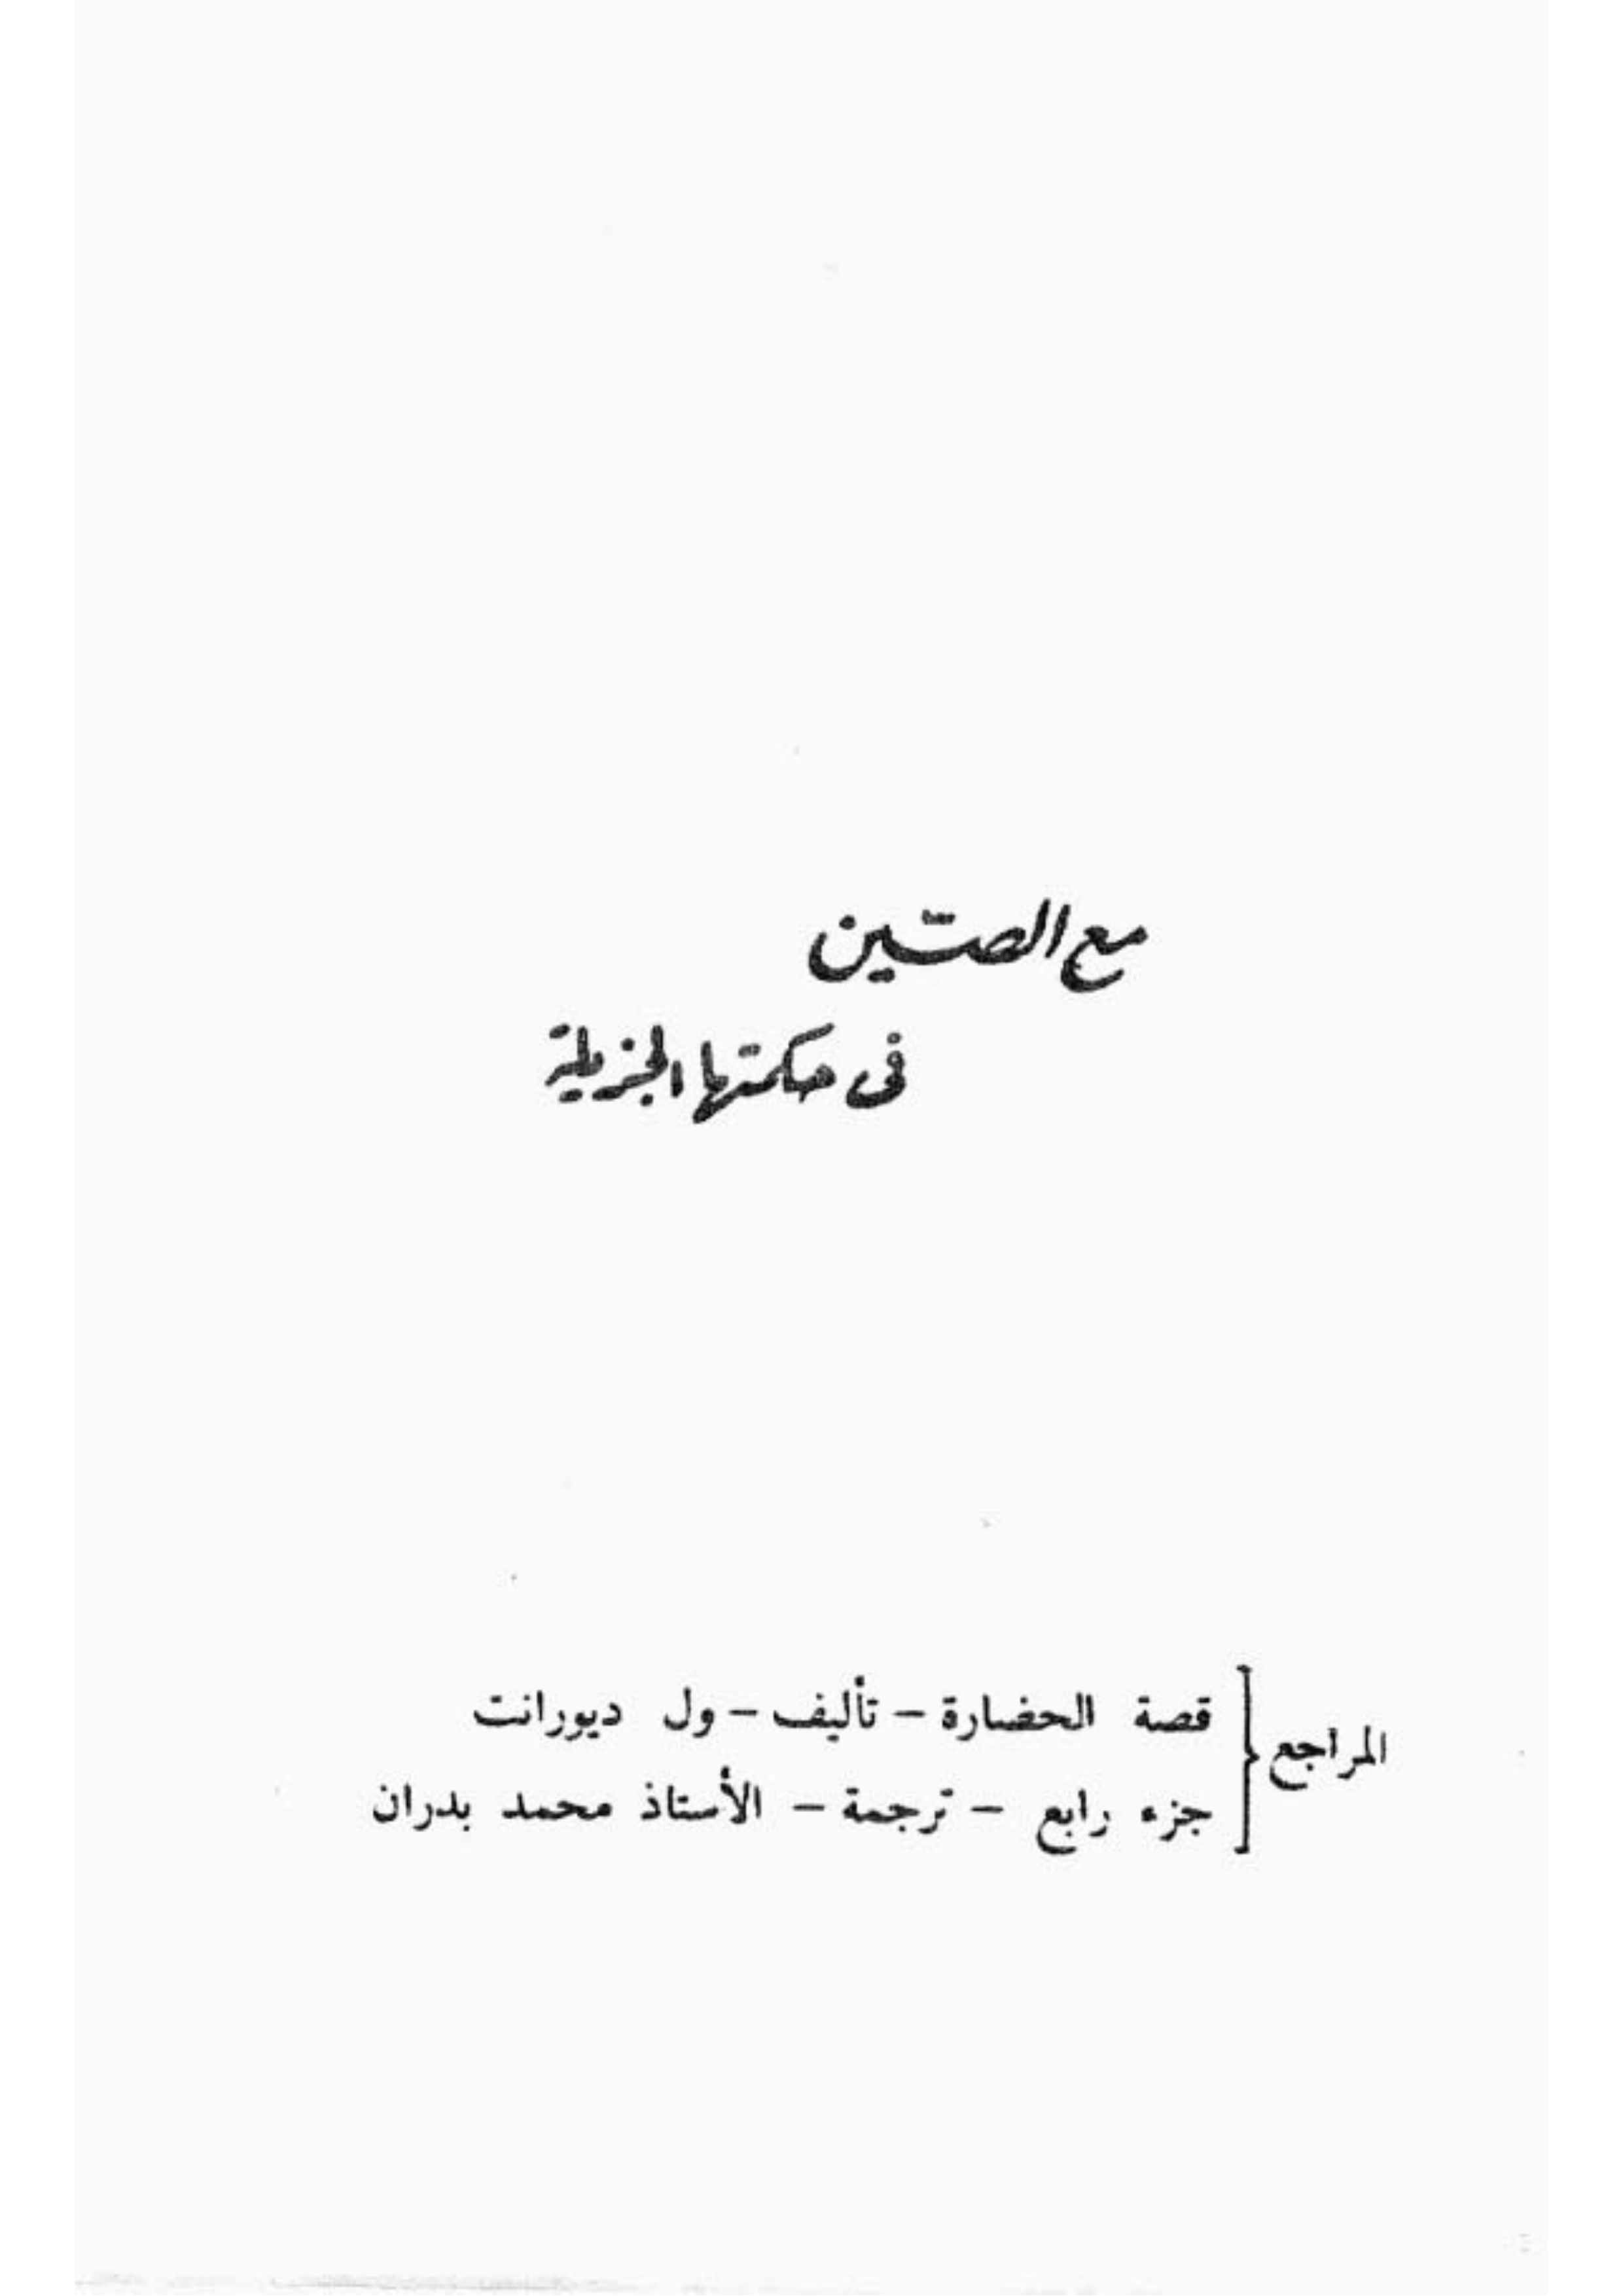 مع الصّين
فى حكمتها الجزيلة
المراجع
قصة الحضارة – تأليف – ول ديورانت
جزء رابع – ترجمة – الأستاذ محمد بدران